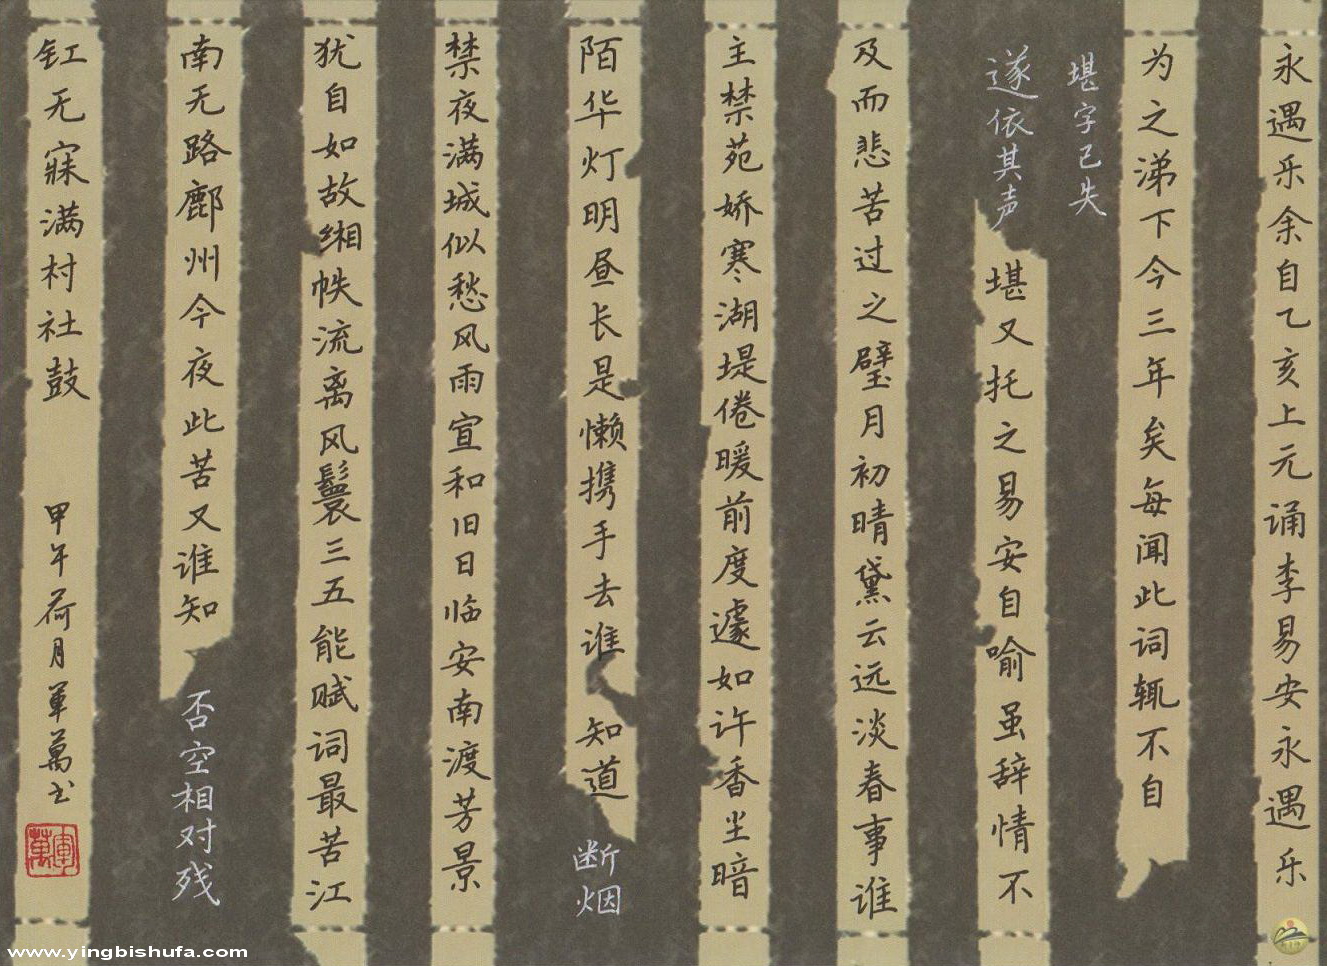 永遇乐余自乙亥上元诵李易安永遇乐
为之涕下今三年矣每闻此词辄不自
堪字已失
遂依其声
堪又托之易安自喻虽辞情不
及而悲苦过之璧月初晴黛云远淡春事谁
主禁苑娇寒湖堤倦暖前度遽如许香尘暗
陌华灯明昼长是懒携手去谁知道
断烟
禁夜满城似愁风雨宣和旧日临安南渡芳景
犹自如故缃帙流离风鬟三五能赋词最苦江
南无路鄜州今夜此苦又谁知
否空相对残
釭无寐满村社鼓
甲午荷月军万书
军万
www.yingbishufa.com